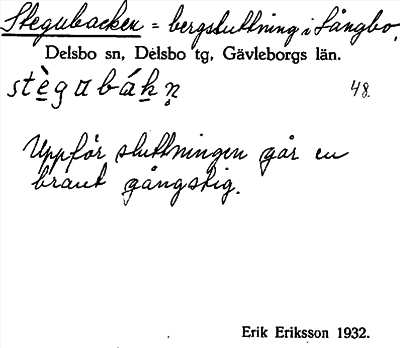 Stegubacken = bergsluttning i Långbo,
Delsbo sn, Delsbo tg, Gävleborgs län.
stè̱gɑbáḵn̥ 48.
Uppför sluttningen går en
brant gångstig.
Erik Eriksson 1932.